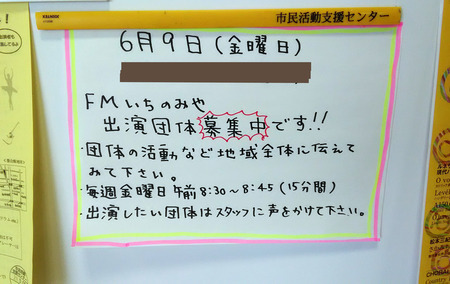 市民活動支援センター
6月9日(金曜日)
FMいちのみや
出演団体募集中です!!
・団体の活動など地域全体に伝えて
みて下さい。
・毎週金曜日午前8:30~8:45(15分間)
・出演したい団体はスタッフに声をかけて下さい。